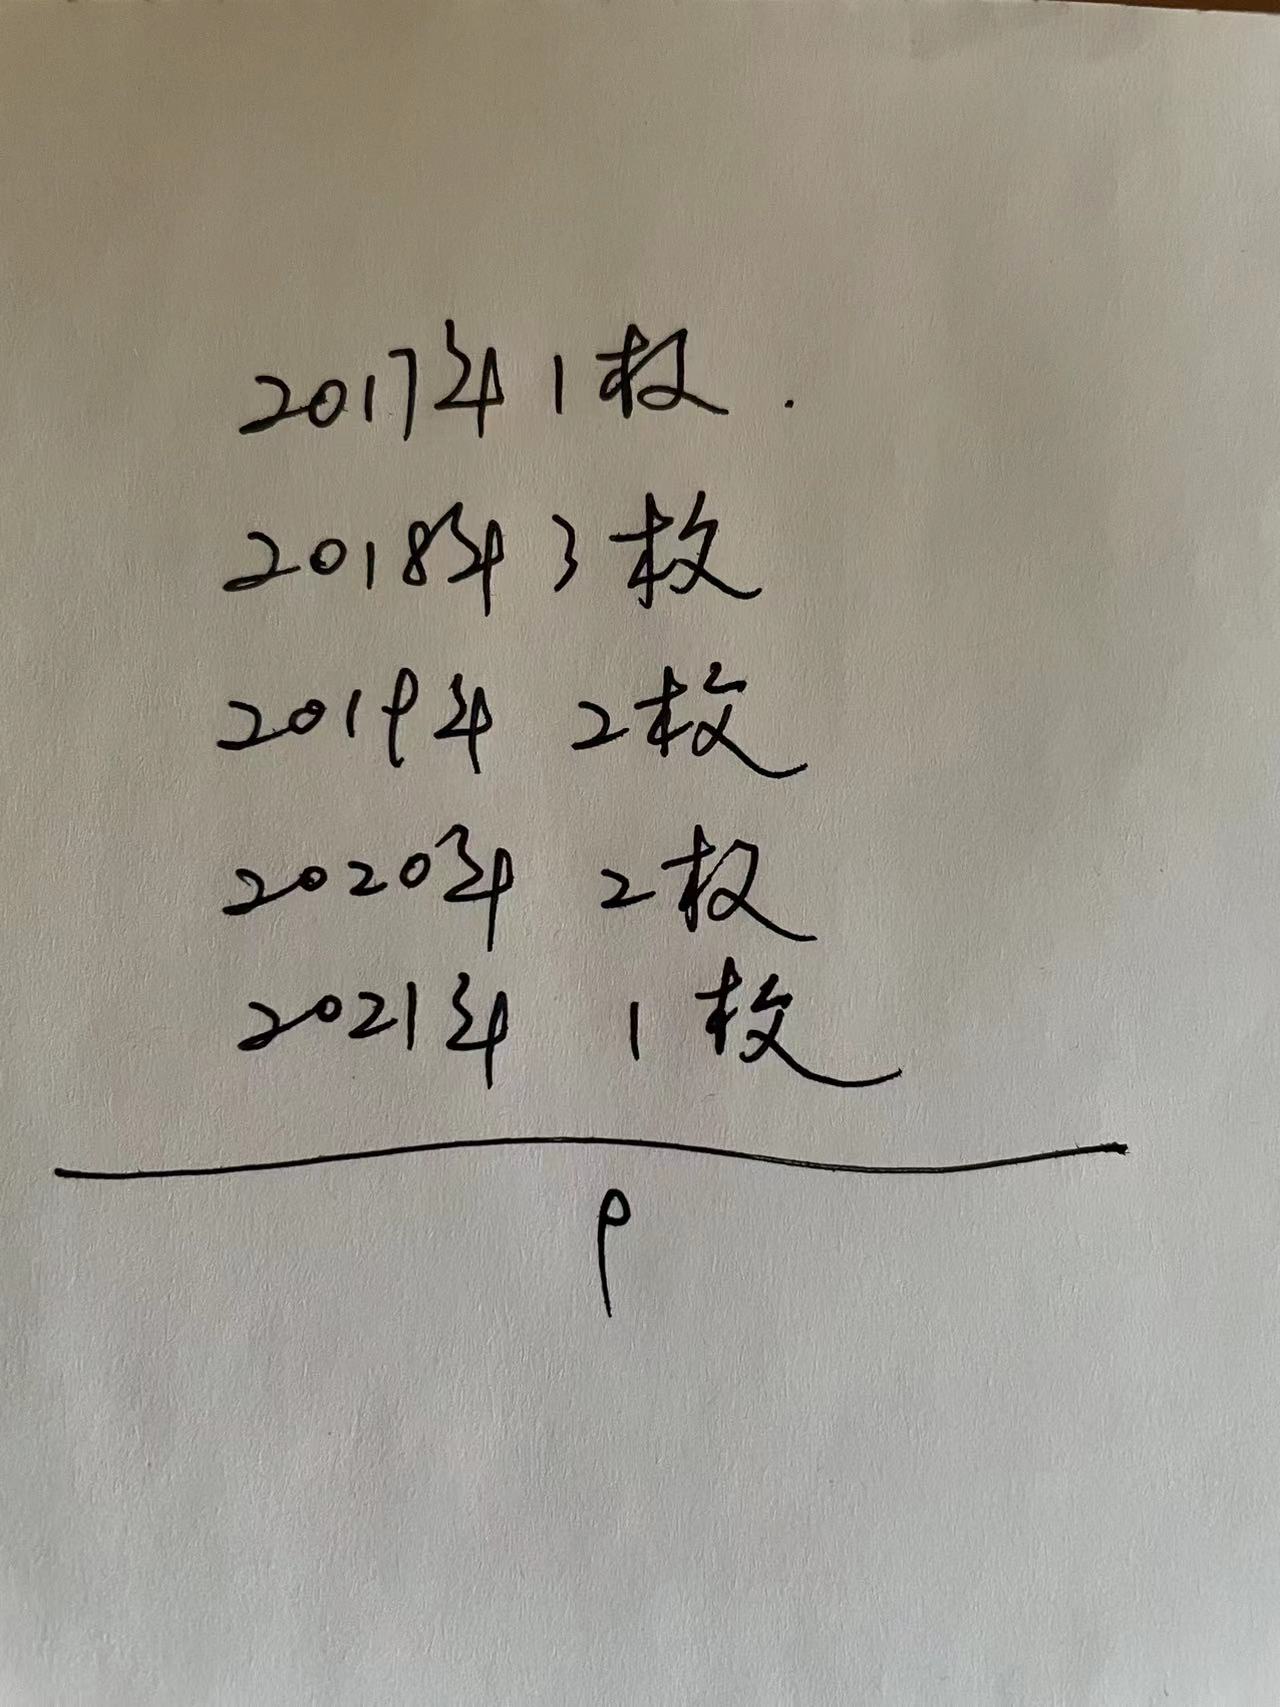 2017年 1枚.
2018年 3枚
2019年 2枚
2020年 2枚
2021年 1枚
9